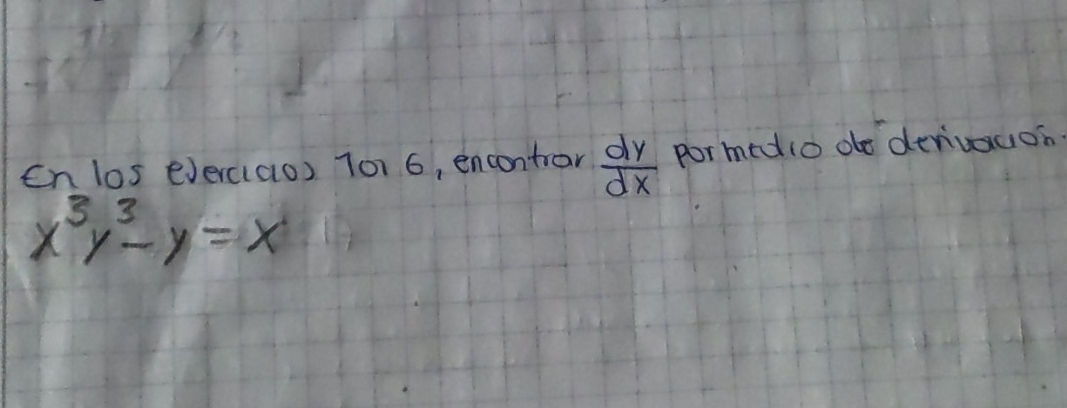 En los ejercicios 1 al 6, encontrar dy/dx por medio de derivación.
x³y³ - y = x